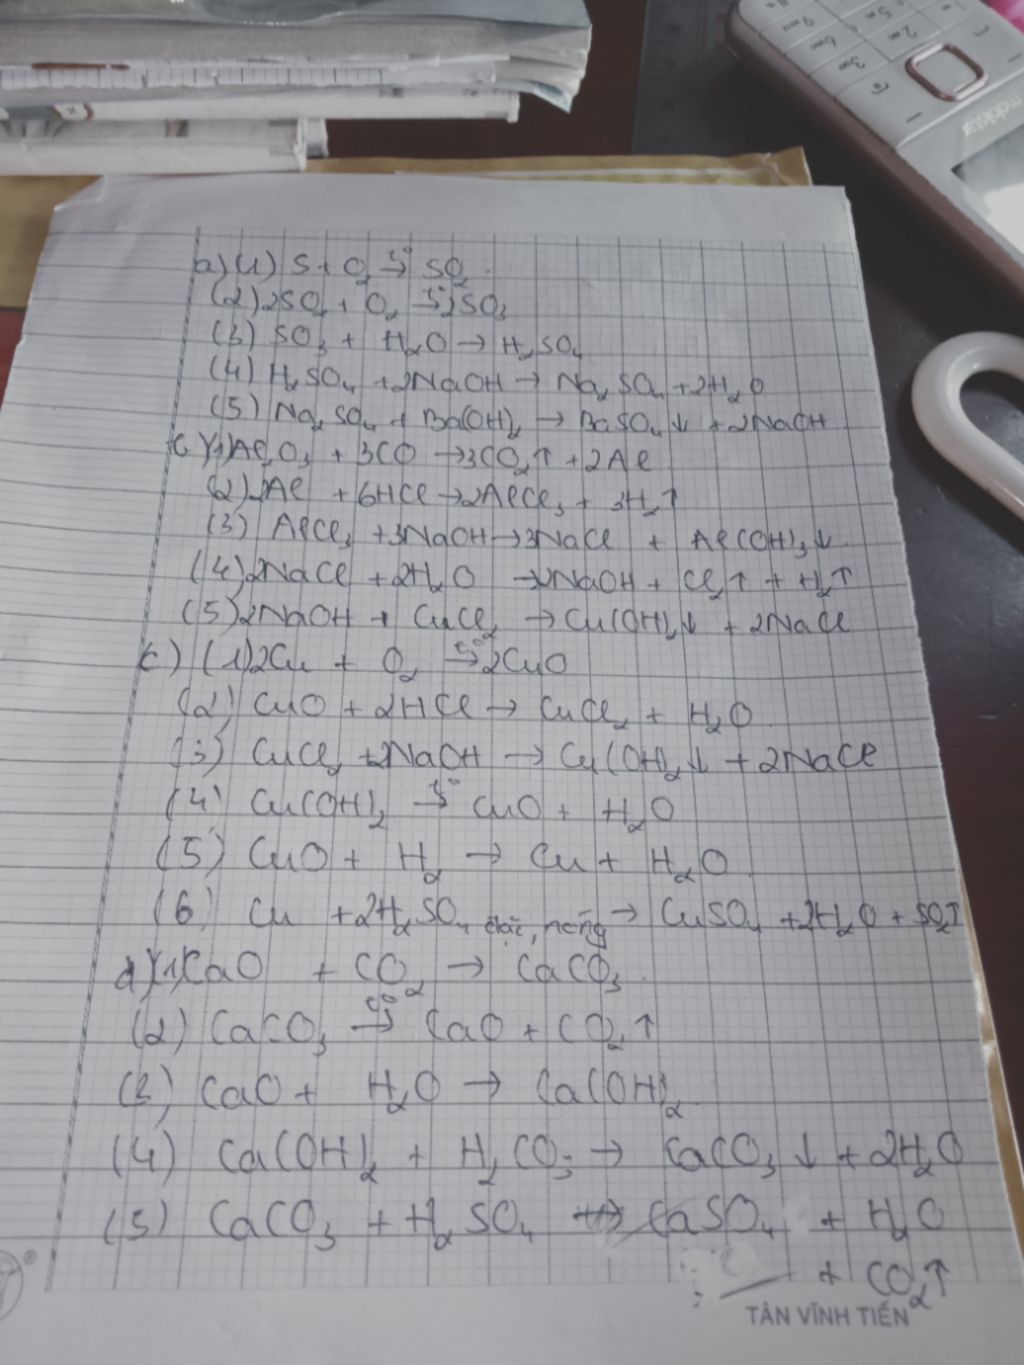 a) (1) S + O₂ →t° SO₂
(2) 2SO₂ + O₂ →t° 2SO₃
(3) SO₃ + H₂O → H₂SO₄
(4) H₂SO₄ + 2NaOH → Na₂SO₄ + 2H₂O
(5) Na₂SO₄ + Ba(OH)₂ → BaSO₄↓ + 2NaOH
(1) Al₂O₃ + 3CO → 3CO₂↑ + 2Al
(2) 2Al + 6HCl → 2AlCl₃ + 3H₂↑
(3) AlCl₃ + 3NaOH → 3NaCl + Al(OH)₃↓
(4) 2NaCl + 2H₂O → 2NaOH + Cl₂↑ + H₂↑
(5) 2NaOH + CuCl₂ → Cu(OH)₂↓ + 2NaCl
c) (1) 2Cu + O₂ →t° 2CuO
(2) CuO + 2HCl → CuCl₂ + H₂O
(3) CuCl₂ + 2NaOH → Cu(OH)₂↓ + 2NaCl
(4) Cu(OH)₂ →t° CuO + H₂O
(5) CuO + H₂ → Cu + H₂O
(6) Cu + 2H₂SO₄ đặc, nóng → CuSO₄ + 2H₂O + SO₂↑
d) (1) CaO + CO₂ → CaCO₃
(2) CaCO₃ →t° CaO + CO₂↑
(3) CaO + H₂O → Ca(OH)₂
(4) Ca(OH)₂ + H₂CO₃ → CaCO₃↓ + 2H₂O
(5) CaCO₃ + H₂SO₄ → CaSO₄ + H₂O
+ CO₂↑
TÂN VĨNH TIẾN